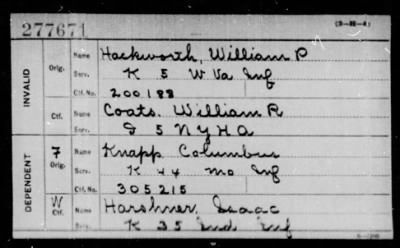 277671
(3-86-4)
INVALID
Orig.
Name Hackworth, William P
Serv. K 5 W Va Inf
Ctf. No. 200188
Ctf.
Name Coats, William R
Serv. I 5 N Y H A
DEPENDENT
7 Orig.
Name Knapp Columbus
Serv. K 44 Mo Inf
Ctf. No. 305215
W Ctf.
Name Harshner, Isaac
Serv. K 35 Ind Inf